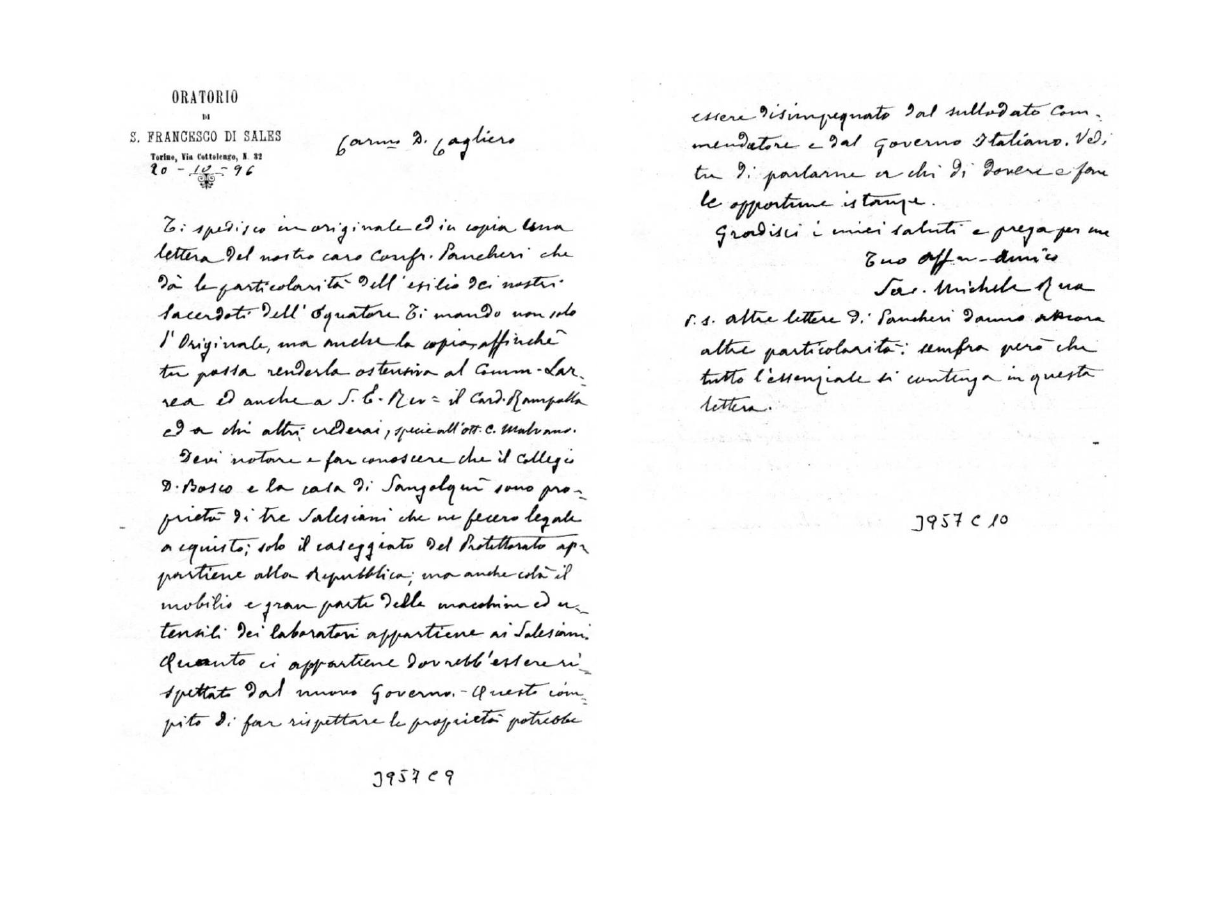 ORATORIO
DI
S. FRANCESCO DI SALES
Torino, Via Cottolengo, N. 32
20 - 10 - 96
Carmo D. Cagliero
Ti spedisco in originale ed in copia una
lettera del nostro caro Confr. Pancheri che
dà le particolarità dell'esilio dei nostri
Sacerdoti dell'Equatore Ti mando non solo
l'Originale, ma anche la copia, affinchè
tu possa renderla ostensiva al Comm. Lar-
rea ed anche a S. E. Rev= il Card. Rampolla
ed a chi altri crederai, specie all'ott. C. Malvano.
Devi notare e far conoscere che il Collegio
D. Bosco e la casa di Sangolquì sono pro-
prietà di tre Salesiani che ne fecero legale
acquisto; solo il caseggiato del Protettorato ap-
partiene alla Repubblica; ma anche colà il
mobilio e gran parte delle macchine ed u-
tensili dei laboratori appartiene ai Salesiani.
Quanto ci appartiene dovrebb'essere ri-
spettato dal nuovo Governo. - Questo com-
pito di far rispettare le proprietà potrebbe
J957 C 9
essere disimpegnato dal sullodato Com-
mendatore e dal Governo Italiano. Vedi
tu di parlarne a chi di dovere e fare
le opportune istanze.
Gradisci i miei saluti e prega per me
Tuo affm- Amico
Sac. Michele Rua
P.S. altre lettere di Pancheri danno ancora
altre particolarità: sembra però che
tutto l'essenziale si contenga in questa
lettera.
J957 C 10